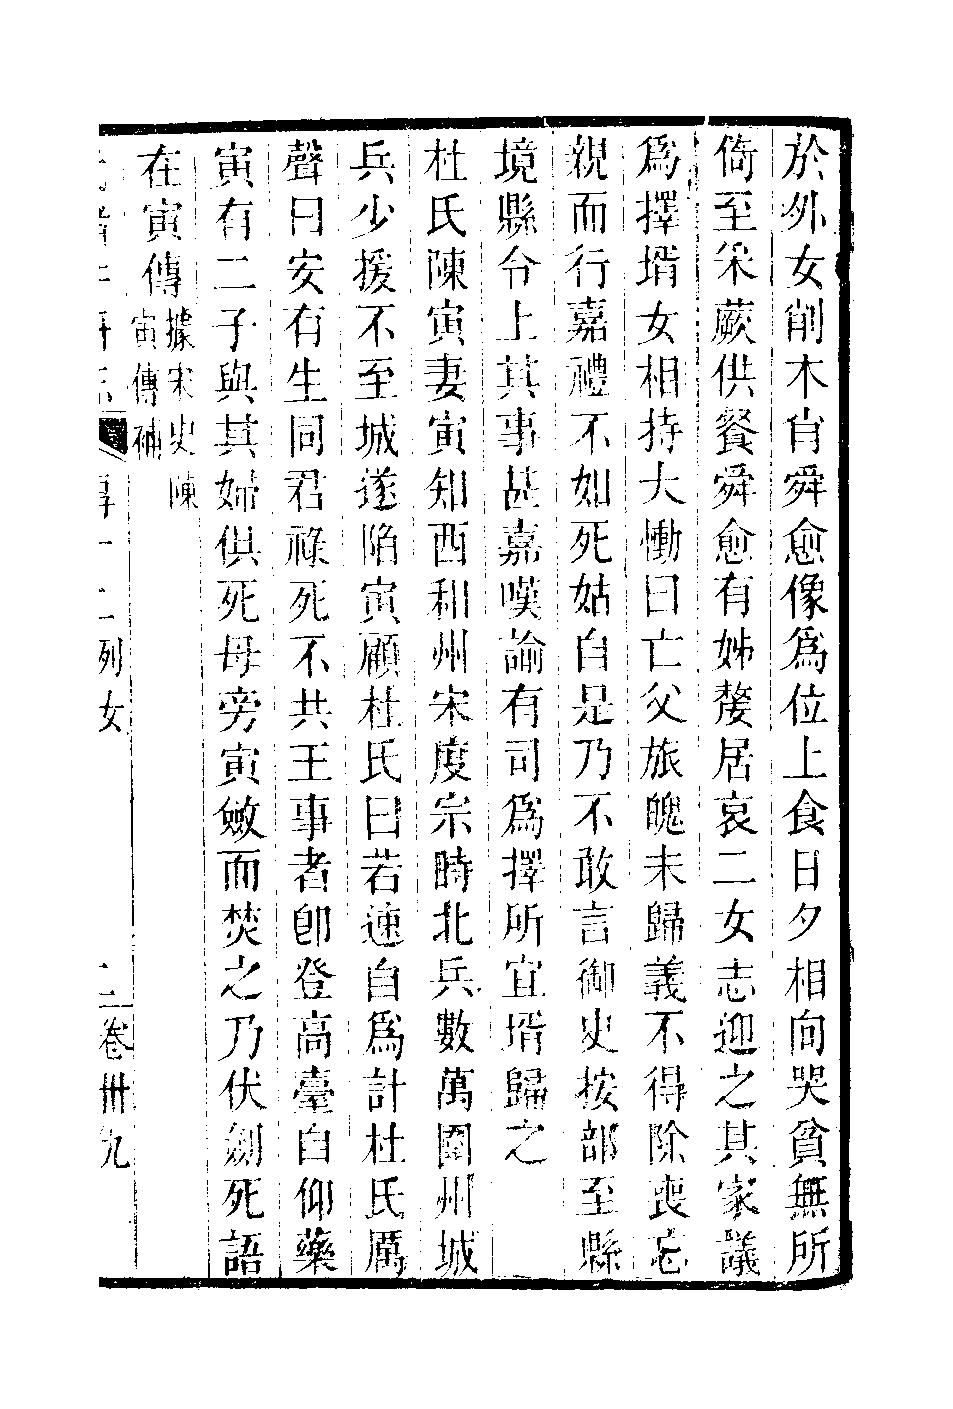 於外女削木肖舜愈像爲位上食日夕相向哭貧無所
倚至采蕨供餐舜愈有姊嫠居哀二女志迎之其家議
爲擇壻女相持大慟曰亡父旅魄未歸義不得除喪忘
親而行嘉禮不如死姑自是乃不敢言御史按部至縣
境縣令上其事甚嘉嘆諭有司爲擇所宜壻歸之
杜氏陳寅妻寅知西和州宋度宗時北兵數萬圍州城
兵少援不至城遂陷寅顧杜氏曰若速自爲計杜氏厲
聲曰安有生同君祿死不共王事者卽登高臺自仰藥
寅有二子與其婦俱死母旁寅斂而焚之乃伏劍死語
在寅傳據宋史陳寅傳補
列女
卷卌九